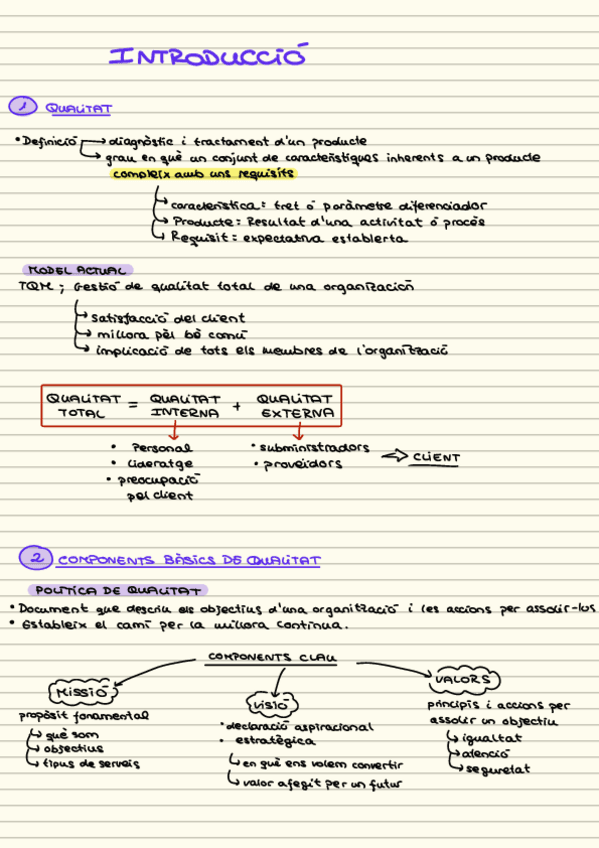 INTRODUCCIÓ
1 QUALITAT
• Definició → diagnòstic i tractament d'un producte
→ grau en què un conjunt de característiques inherents a un producte
compleix amb uns requisits
→ característica: tret o paràmetre diferenciador
→ Producte: Resultat d'una activitat o procés
→ Requisit: expectativa establerta
MODEL ACTUAL
TQM; Gestió de qualitat total de una organización
→ satisfacció del client
→ millora pèl bé comú
→ implicació de tots els membres de l'organització
QUALITAT TOTAL = QUALITAT INTERNA + QUALITAT EXTERNA
• Personal
• Lideratge
• preocupació
pel client
• subministradors
• proveïdors
⇒ CLIENT
2 COMPONENTS BÀSICS DE QUALITAT
POLÍTICA DE QUALITAT
• Document que descriu els objectius d'una organització i les accions per assolir-los
• Estableix el camí per la millora contínua.
COMPONENTS CLAU
MISSIÓ
propòsit fonamental
→ què som
→ objectius
→ tipus de serveis
VISIÓ
• declaració aspiracional
• estratègica
→ en què ens volem convertir
→ valor afegit per un futur
VALORS
principis i accions per
assolir un objectiu
→ igualtat
→ atenció
→ seguretat